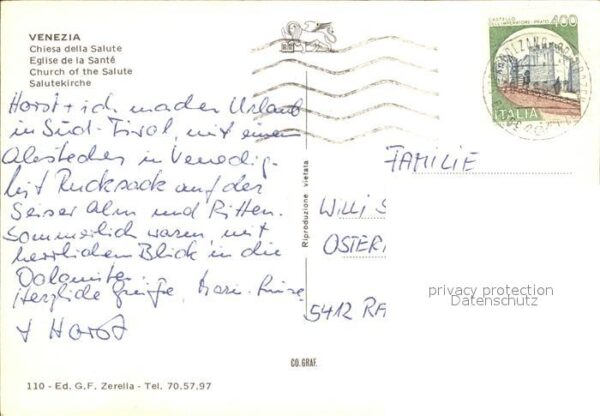 VENEZIA
Chiesa della Salute
Eglise de la Santé
Church of the Salute
Salutekirche
Horst + ich machen Urlaub
in Süd-Tirol, mit einem
Abstecher in Venedig.
Mit Rucksack auf der
Seiser Alm und Ritten.
Sommerlich warm, mit
herrlichem Blick in die
Dolomiten.
Herzliche Grüße, Marie-Luise
+ Horst
110 - Ed. G.F. Zerella - Tel. 70.57.97
Riproduzione vietata
CO.GRAF.
CASTELLO
DELL'IMPERATORE - PRATO
400
ITALIA
BOLZANO
FAMILIE
WILLI S
OSTER
5412 RA
privacy protection
Datenschutz